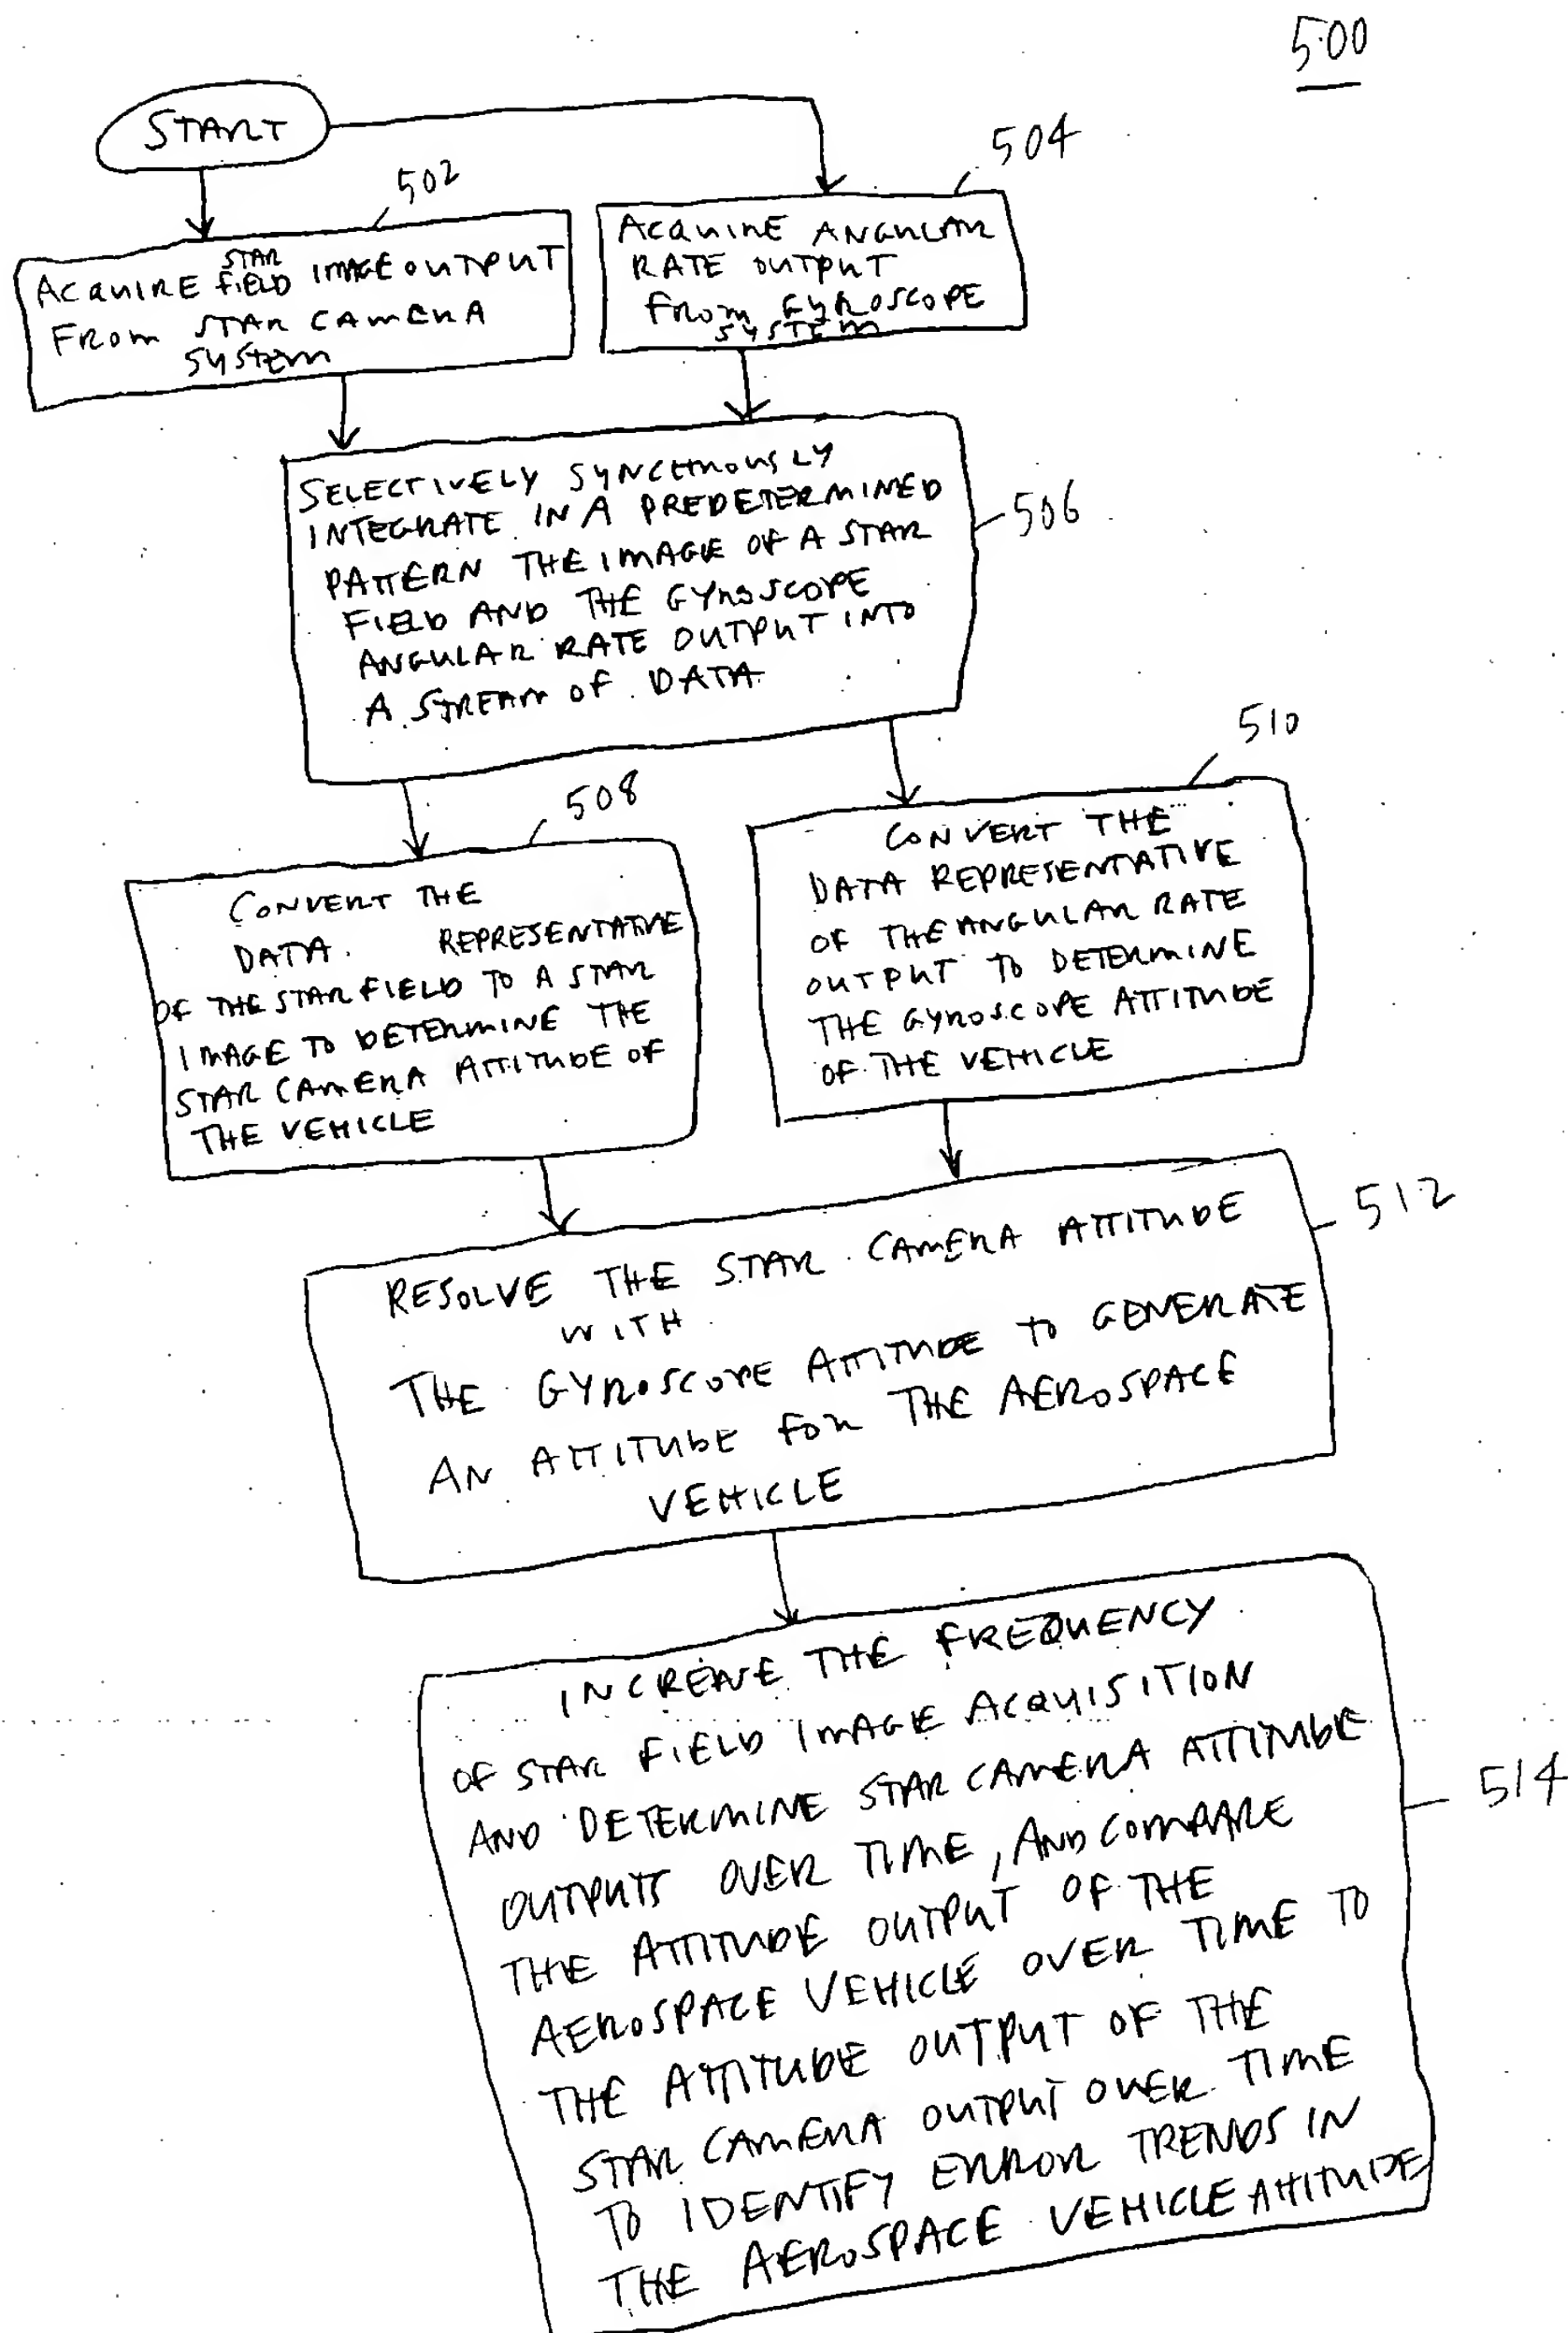 500
START
502
504
ACQUIRE STAR FIELD IMAGE OUTPUT
FROM STAR CAMERA
SYSTEM
ACQUIRE ANGULAR
RATE OUTPUT
FROM GYROSCOPE
SYSTEM
SELECTIVELY SYNCHRONOUSLY
INTEGRATE IN A PREDETERMINED
PATTERN THE IMAGE OF A STAR
FIELD AND THE GYROSCOPE
ANGULAR RATE OUTPUT INTO
A STREAM OF DATA
506
508
510
CONVERT THE
DATA REPRESENTATIVE
OF THE STAR FIELD TO A STAR
IMAGE TO DETERMINE THE
STAR CAMERA ATTITUDE OF
THE VEHICLE
CONVERT THE
DATA REPRESENTATIVE
OF THE ANGULAR RATE
OUTPUT TO DETERMINE
THE GYROSCOPE ATTITUDE
OF THE VEHICLE
RESOLVE THE STAR CAMERA ATTITUDE
WITH
THE GYROSCOPE ATTITUDE TO GENERATE
AN ATTITUDE FOR THE AEROSPACE
VEHICLE
512
INCREASE THE FREQUENCY
OF STAR FIELD IMAGE ACQUISITION
AND DETERMINE STAR CAMERA ATTITUDE
OUTPUTS OVER TIME, AND COMPARE
THE ATTITUDE OUTPUT OF THE
AEROSPACE VEHICLE OVER TIME TO
THE ATTITUDE OUTPUT OF THE
STAR CAMERA OUTPUT OVER TIME
TO IDENTIFY ERROR TRENDS IN
THE AEROSPACE VEHICLE ATTITUDE
514